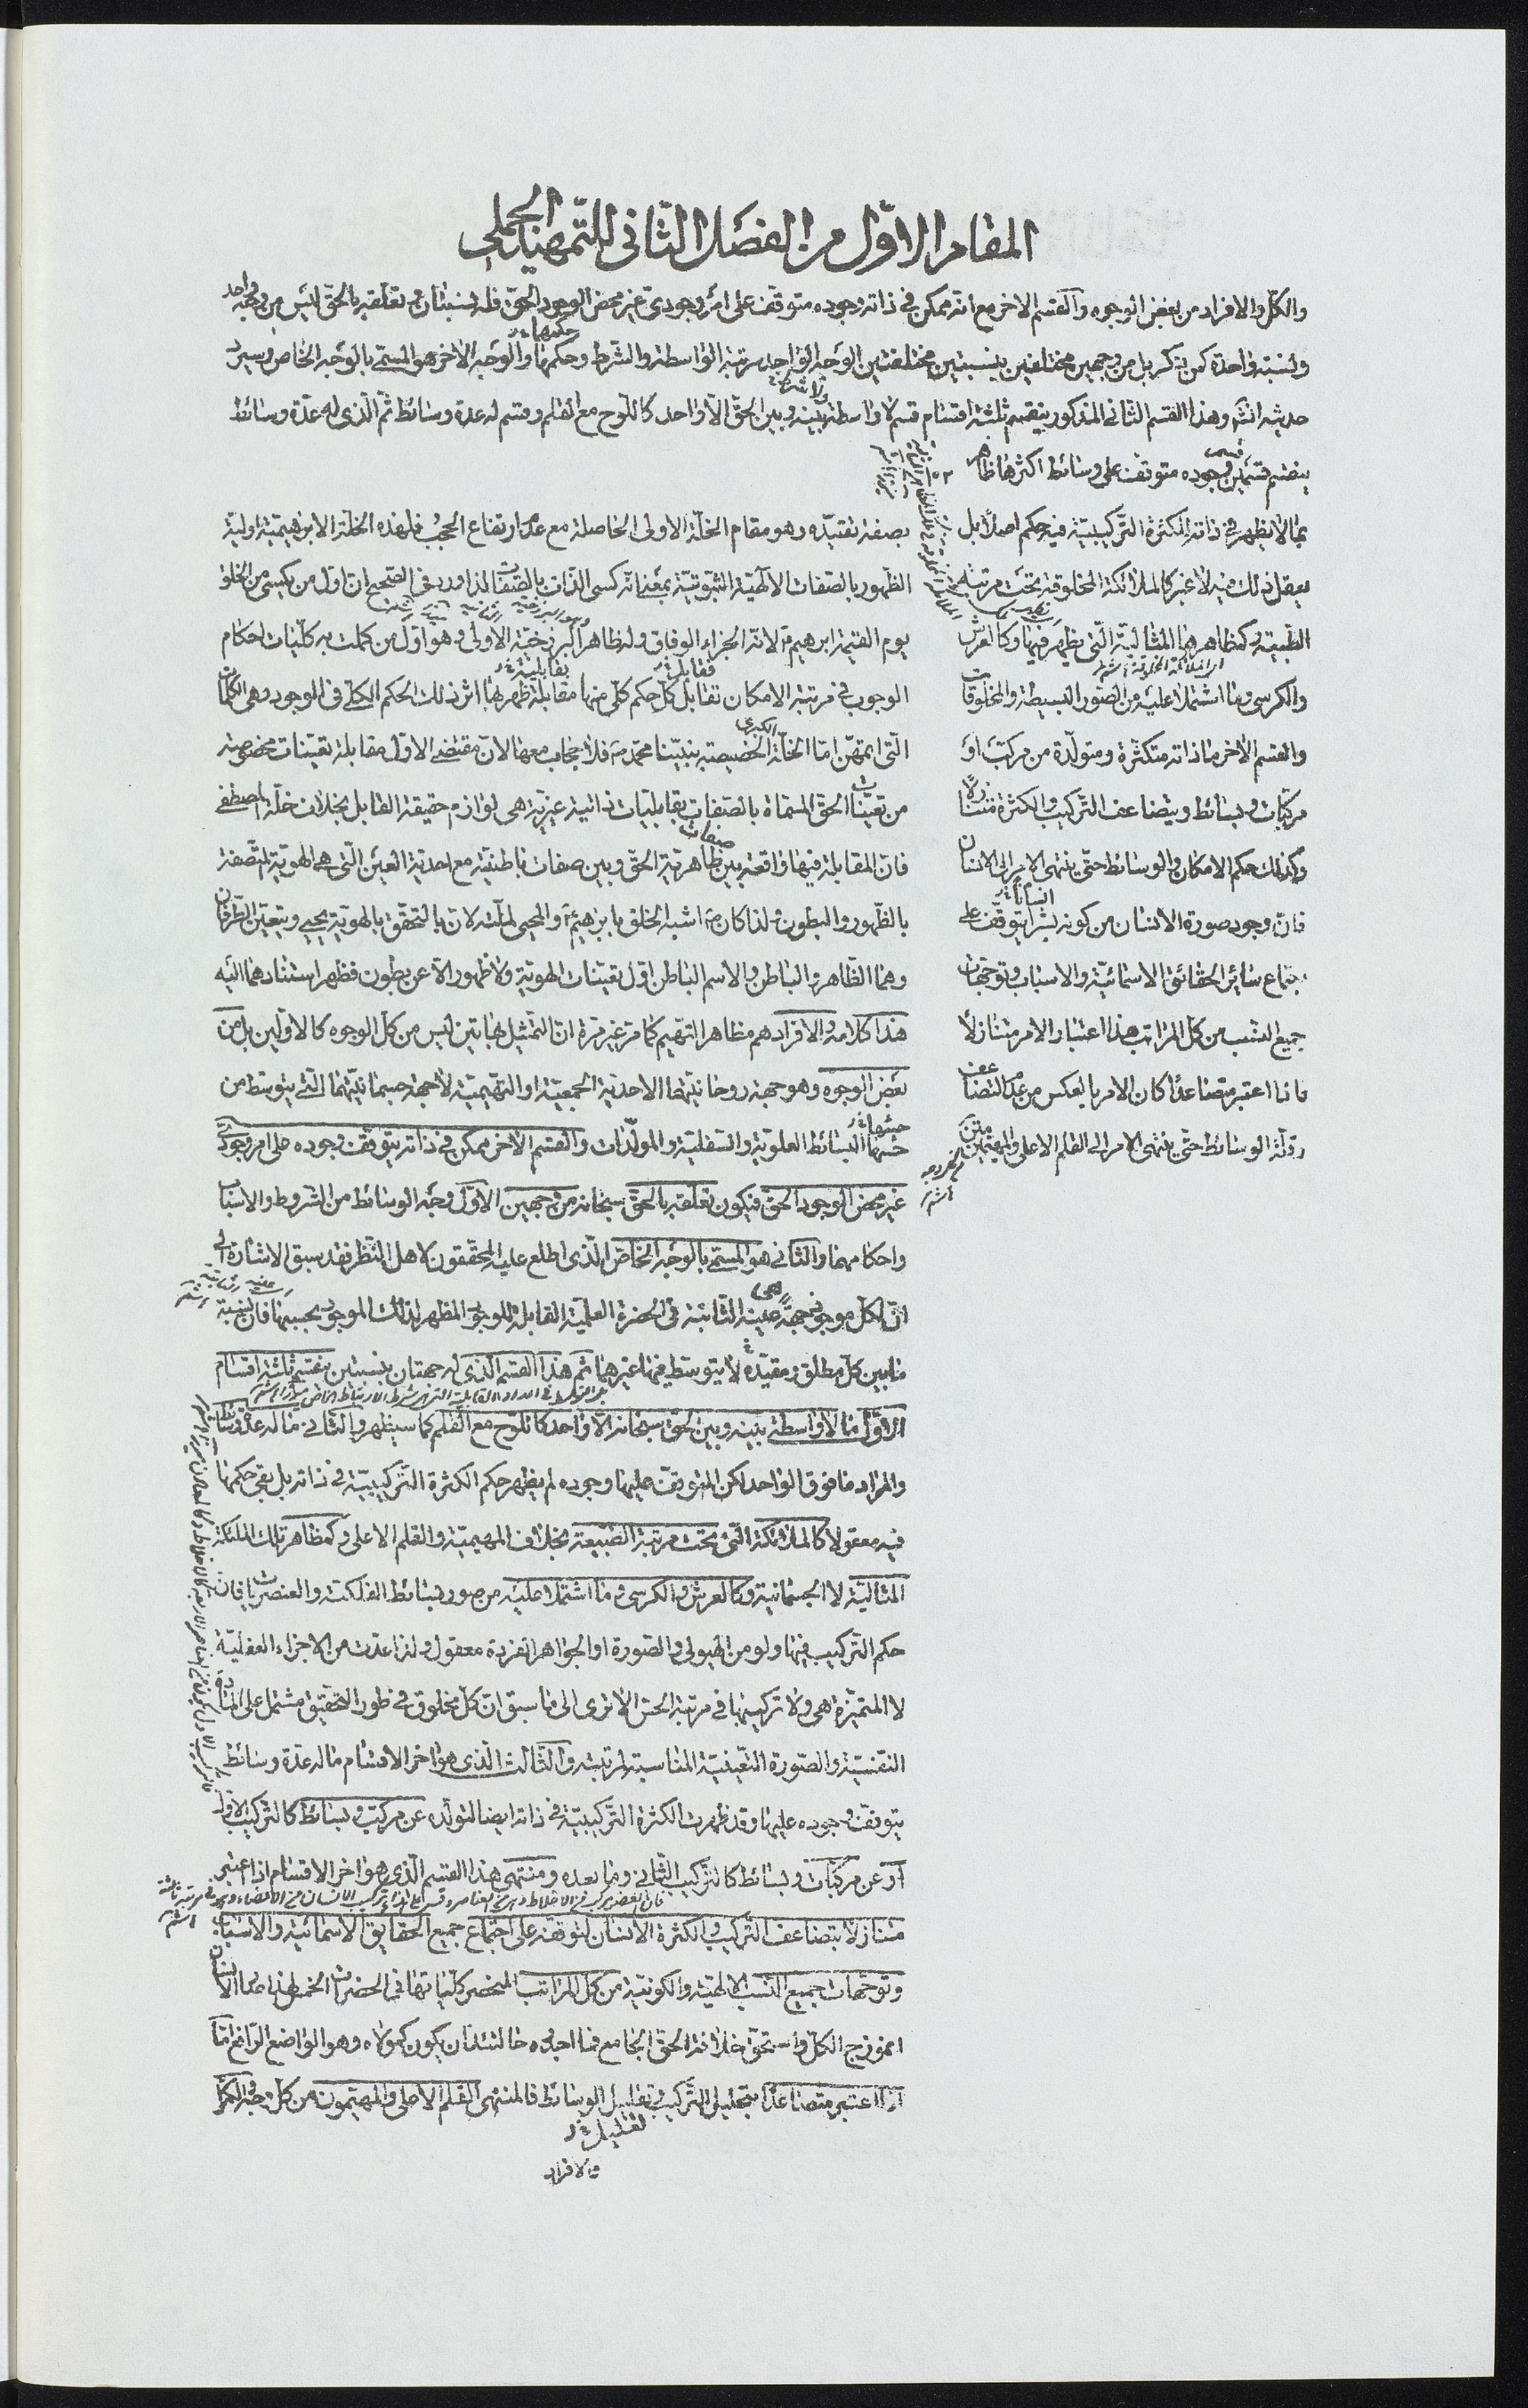 المقام الاوّل من الفصل الثّانى للتّمهيد الجملى
والكلّ والافراد من بعض الوجوه والقسم الاخر مع انّه ممكن فى ذاته وجوده متوقّف على امر وجودىّ غير محض الوجود الحقّ فله نسبتان فى تعلّقه بالحقّ ليس من وجه واحد
ونسبة واحدة كمن ذكر بل من وجهين مختلفين بنسبتين مختلفتين الوجه الواحد مرتبة الواسطة والشّرط وحكمها والوجه الاخر هو المسمّى بالوجه الخاص وسيرد
حديثه انش وهذا القسم الثانى المذكور ينقسم ثلثة اقسام قسم لا واسطة بينه وبين الحقّ الّا واحد كاللّوح مع القلم وقسم له عدة وسائط ثم الّذى له عدّة وسائط
ينقسم قسمين قسم وجوده متوقّف على وسائط اكثرها ظاهر
ممّا لا يظهر فى ذاته للكثرة التّركيبيّة فيه حكم اصلا بل
يعقل ذلك فيه لا غير كالملائكة المخلوقة تحت مرتبة
الطّبيعة وكمظاهرها المثاليّة الّتى يظهر فيها وكالعرش
والكرسى وما اشتملا عليه من الصّور البسيطة والمخلوقات
والقسم الاخر ما ذاته متكثّرة ومتولّدة من مركّب او
مركّبات وبسائط ويتضاعف التّركيب والكثرة متنازلا
وكذلك حكم الامكان والوسائط حتّى ينتهى الامر الى الانسان
فانّ وجود صورة الانسان من كونه بشرا يتوقّف على
اجتماع سائر الحقائق الاسمائيّة والاسباب وتوجّهات
جميع النسب من كلّ المراتب هذا اعتبار الامر متنازلا
فاذا اعتبر متصاعدا كان الامر بالعكس من عدم التضاعف
وقلّة الوسائط حتّى ينتهى الامر الى القلم الاعلى والمهيّمين
بصفة تقيّده وهو مقام الخلّة الاولى الحاصلة مع عدم ارتفاع الحجب فلهذه الخلّة الابراهيميّة اوليّة
الظّهور بالصّفات الالهيّة الثّبوتيّة بمعنى انّه كسى الذّات بالصّفات لذا ورد فى الصّحيح انّ اوّل من يكسى من الخلق
يوم القيمة ابرهيم ع لانّه الجزاء الوفاق وله ظاهر البرزخيّة الاولى وهو اوّل من كملت به كلّيات احكام
الوجوب فى مرتبة الامكان تقابل كلّ حكم كلّى منها مقابلة ظهر بها اثر ذلك الحكم الكلّى فى الوجود وهى الكلمات
الّتى اتمّهنّ امّا الخلّة الخصيصة بنبيّنا محمّد ص فلا حجاب معها لانّ مقتضى الاوّل مقابلة تعيّنات مخصوصة
من تعيّنات الحقّ المسمّاة بالصّفات بقابليّات ذاتية غيريّة هى لوازم حقيقة القابل بخلاف خلّة المصطفى
فانّ المقابلة فيها واقعة بين ظاهريّة الحقّ وبين صفات باطنيّة مع احديّة العين الّتى هى الهويّة المتّصفة
بالظّهور والبطون ولذا كان ص اشبه الخلق بابرهيم ع والمحيى لملّته لانّ بالتحقّق بالهويّة يحيى ويتعيّن الطّرفان
وهما الظّاهر والباطن والاسم الباطن اوّل تعيّنات الهويّة ولا ظهور الّا عن بطون فظهر استنادهما اليه
هذا كلامه والافراد هم مظاهر التهيم كما مرّ غير مرّة انّ التمثيل بهاتين ليس من كلّ الوجوه كالاوّلين بل من
بعض الوجوه وهو جهة روحانيّتهما الاحديّة الجمعيّة او التهيّميّة لا جهة جسمانيّتهما الّتى يتوسّط من
جنسها البسائط العلويّة والسّفليّة والمولّدات والقسم الاخر ممكن فى ذاته يتوقّف وجوده على امر وجودىّ
غير محض الوجود الحقّ فيكون تعلّقه بالحقّ سبحانه من وجهين الاوّل وجه الوسائط من الشروط والاسباب
واحكامها والثانى هو المسمّى بالوجه الخاصّ الّذى اطلع عليه المحقّقون لا اهل النّظر فقد سبق الاشارة الى
انّ لكلّ موجود جهة هى عينه الثّابتة فى الحضرة العلميّة القابلة للوجود المظهر لذلك الموجود بحسبها فانّ نسبة
ما بين كلّ مطلق ومقيّده لا يتوسّط فيها غيرهما ثم هذا القسم الّذى له جهتان بنسبتين ينقسم ثلثة اقسام
الاوّل ما لا واسطة بينه وبين الحقّ سبحانه الّا واحد كاللّوح مع القلم كما سيظهر والثّانى ما له عدّة وسائط
والمراد ما فوق الواحد لكن المتوقّف عليها وجوده لم يظهر حكم الكثرة التّركيبيّة فى ذاته بل بقى حكمها
فيه معقولا كالملائكة الّتى تحت مرتبة الطّبيعة بخلاف المهيّمية والقلم الاعلى وكمظاهر تلك الملئكة
المثاليّة لا الجسمانية وكالعرش والكرسى وما اشتملا عليه من صور بسائط الفلكيّة والعنصريات فانّ
حكم التّركيب فيها ولو من الهيولى والصّورة او الجواهر الفردة معقول ولذا عدّت من الاجزاء العقليّة
لا المتميّزة هى ولا تركيبها فى مرتبة الحسّ الا ترى الى ما سبق انّ كلّ مخلوق فى طور التحقيق مشتمل على المادة
النفسيّة والصّورة التعيّنيّة المناسبة لمرتبته والثّالث الّذى هو اخر الاقسام ما له عدّة وسائط
يتوقّف وجوده عليها وقد ظهرت الكثرة التّركيبيّة فى ذاته ايضا لتولّده عن مركّب وبسائط كالتّركيب الاوّل
او عن مركّبات وبسائط كالتّركيب الثّانى وما بعده ومنتهى هذا القسم الّذى هو اخر الاقسام اذا اعتبر
متنازلا بتضاعف التّركيب والكثرة الانسان لتوقّفه على اجتماع جميع الحقايق الاسمائيّة والاسباب
وتوجّهات جميع النّسب الالهيّة والكونيّة من كلّ المراتب المنحصر كلّياتها فى الحضرات الخمس
انموذج الكلّ واستحقّ خلافة الحقّ الجامع
اذا اعتبر متصاعدا بتحليل التّركيب وتقليل الوسائط فالمنتهى القلم الاعلى والمهيّمون من كلّ وجه والكمّل
والافراد